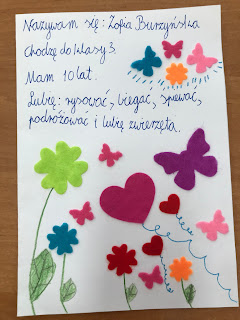 Nazywam się: Zofia Burzyńska
Chodzę do klasy 3.
Mam 10 lat.
Lubię: rysować, biegać, śpiewać,
podróżować i lubię zwierzęta.